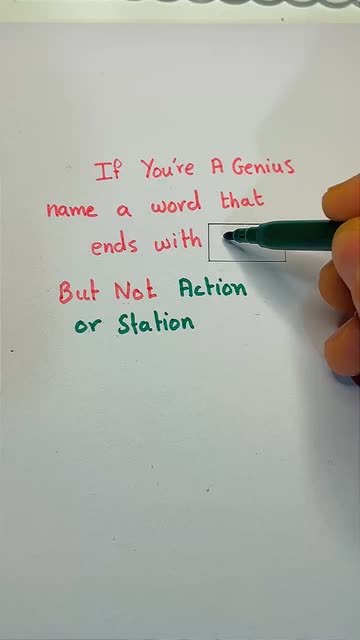 If You're A Genius
name a word that
ends with
But Not Action
or Station